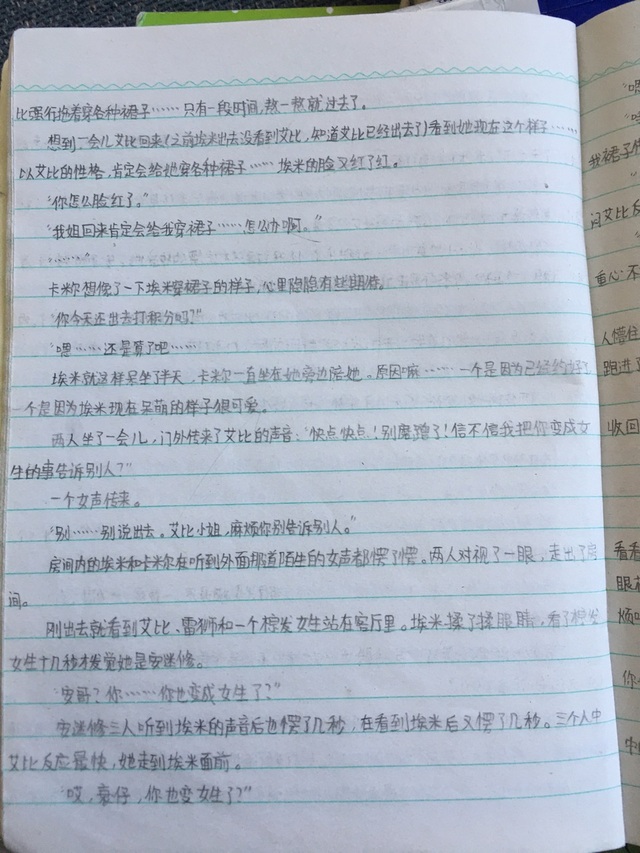 比强行抱着穿各种裙子……只有一段时间,熬一熬就过去了。
想到一会儿艾比回来(之前埃米出去没看到艾比,知道艾比已经出去了)看到她现在这个样子……
以艾比的性格,肯定会给她穿各种裙子……埃米的脸又红了红。
“你怎么脸红了。”
“我姐回来肯定会给我穿裙子……怎么办啊。”
“………”
卡米尔想像了一下埃米穿裙子的样子,心里隐隐有些期待。
“你今天还出去打积分吗?”
“嗯……还是算了吧……
埃米就这样呆坐了半天,卡米尔一直坐在她旁边陪她。原因嘛……一个是因为已经约好了
一个是因为埃米现在呆萌的样子很可爱。
两人坐了一会儿,门外传来了艾比的声音:“快点快点!别磨蹭了!信不信我把你变成女
生的事告诉别人?”
一个女声传来。
“别……别说出去。艾比小姐,麻烦你别告诉别人。”
房间内的埃米和卡米尔在听到外面那道陌生的女声都愣了愣。两人对视了一眼,走出了房
间。
刚出去就看到艾比、雷狮和一个棕发女生站在客厅里。埃米揉了揉眼睛,看了棕发
女生十几秒才发觉她是安迷修。
“安哥?你……你也变成女生了?”
安迷修三人听到埃米的声音后也愣了几秒,在看到埃米后又愣了几秒。三个人中
艾比反应最快,她走到埃米面前。
“哎,衰仔,你也变女生了?”
“嗯
我裙子
问艾比反
重心不
人懂住
跑进了
收回
看看
眼和
烦
你